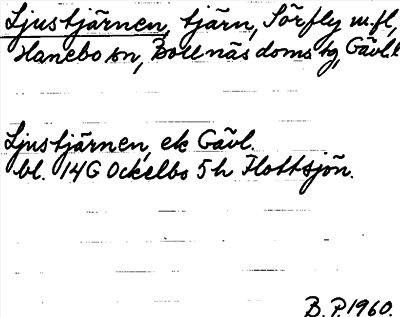 Ljustjärnen, tjärn, Sörfly m.fl,
Hanebo sn, Bollnäs doms tg, Gävl.l
Ljustjärnen, ek Gävl.
bl. 14G Ockelbo 5h Flottsjön.
B.P. 1960.